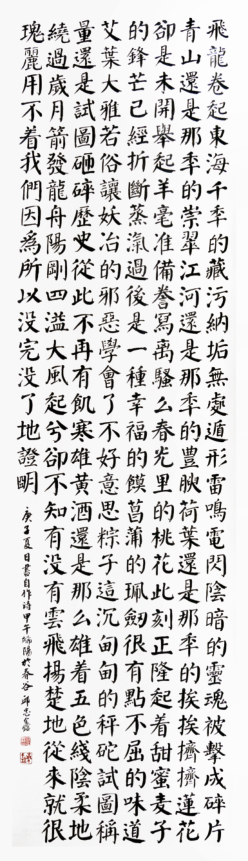 飛龍卷起東海千秊的藏污納垢無處遁形雷鳴電閃陰暗的靈魂被擊成碎片
青山還是那秊的崇翠江河還是那秊的豊腴荷葉還是那秊的挨挨擠擠蓮花
卻是未開舉起羊毫准備謄寫离騷么春光里的桃花此刻正隆起着甜蜜麦子
的鋒芒已經折斷蒸氣過後是一種幸福的饃菖蒲的珮劒很有點不屈的味道
艾葉大雅若俗讓妖冶的邪惡學會了不好意思粽子這沉甸甸的秤砣試圖稱
量還是試圖砸碎歷史從此不再有飢寒雄黄酒還是那么雄着五色綫陰柔地
繞過歲月箭發龍舟陽剛四溢大風起兮卻不知有没有雲飛揚楚地從來就很
瑰麗用不着我們因為所以没完没了地證明
庚子夏日書自作诗甲午端陽於春谷